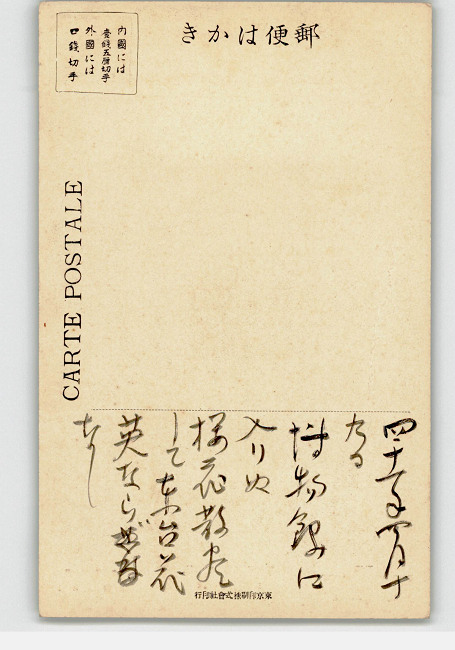 郵便はかき
内國には
壹錢五厘切手
外國には
四錢切手
CARTE POSTALE
四十一年四月十
日
博物館に
入りぬ
桜花散尽
して東台花
英ならざる
なし
東京印刷株式會社印行